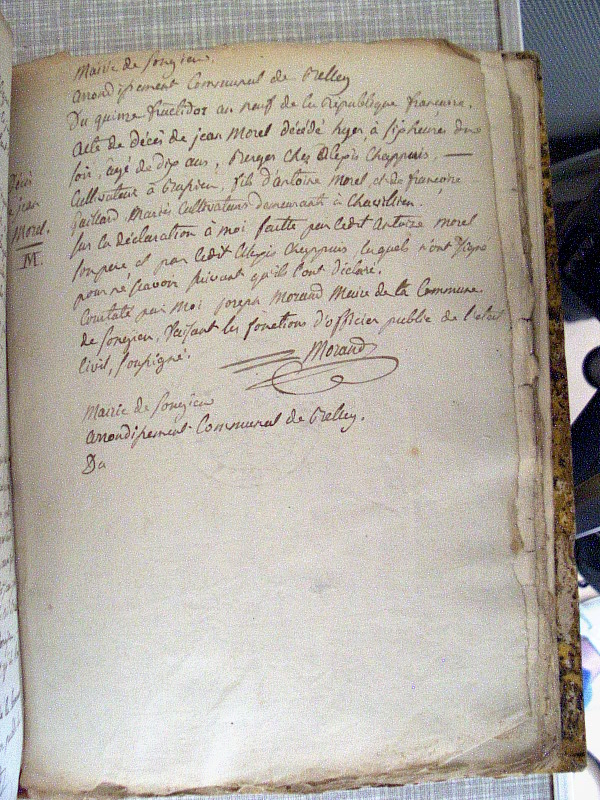 Mairie de Songieu.
arrondissement Communal de Belley
Du quinze fructidor an neuf de la république françoise.
acte de décès de jean Morel décédé hyer à six heures du
soir, âgé de dix ans, Berger chez Alexis Chappuis,
Cultivateur à fils d'antoine Morel et de françoise
Gaillard Mariés Cultivateurs demeurants à Chavillieu.
sur la déclaration à moi faitte par ledit Antoine morel
son pere et par ledit Alexis Chappuis lequels n'ont signé
pour ne sçavoir suivant qu'ils l'ont déclaré.
Constaté par Moi joseph Morand Maire de la Commune
de Songieu, faisant les fonctions d'officier public de l'etat
Civil, soussigné.
Morand
jean
Morel.
M.
Mairie de Songieu
arrondissement Communal de Belley.
Du